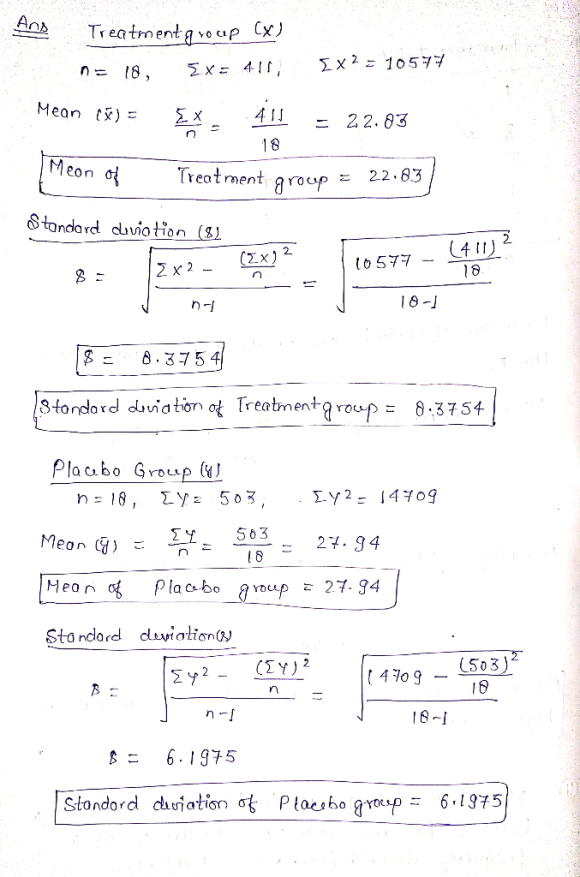 Ans Treatment group (x)
n = 18, Σx = 411, Σx² = 10577
Mean (x̄) = Σx/n = 411/18 = 22.83
Mean of Treatment group = 22.83
Standard diviation (s)
s = √((Σx² - (Σx)²/n)/(n-1)) = √((10577 - (411)²/18)/(18-1))
s = 8.3754
Standard diviation of Treatment group = 8.3754
Placebo Group (y)
n = 18, Σy = 503, Σy² = 14709
Mean (ȳ) = Σy/n = 503/18 = 27.94
Mean of Placebo group = 27.94
Standard deviation(s)
s = √((Σy² - (Σy)²/n)/(n-1)) = √((14709 - (503)²/18)/(18-1))
s = 6.1975
Standard diviation of Placebo group = 6.1975